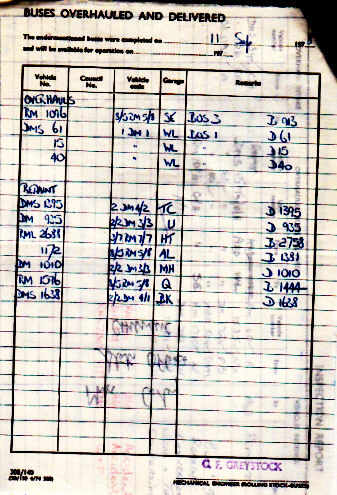 BUSES OVERHAULED AND DELIVERED
The undermentioned buses were completed on 11 Sep 197
and will be available for operation on 197
Vehicle No. Council No. Vehicle code Garage Remarks
OVERHAULS
RM 1096 3/5RM5/8 SK BUS 3 D 913
DMS 61 1 DM 1 WL BUS 1 D 61
15 " WL D 15
40 " WL D 40
REPAINT
DMS 1395 2 DM 4/2 TC D 1395
DM 935 2/2 DM 3/3 U D 935
RML 2688 3/7 RM 7/7 HT D 2758
1172 3/5 RM 5/8 AL D 1381
DM 1010 2/2 DM 3/3 MH D 1010
RM 1576 3/5 RM 5/8 Q D 1444
DMS 1638 2/2 DM 4/1 BK D 1638
INSPECTION REPORT
G. F. GREYSTOCK
MECHANICAL ENGINEER (ROLLING STOCK-BUSES)